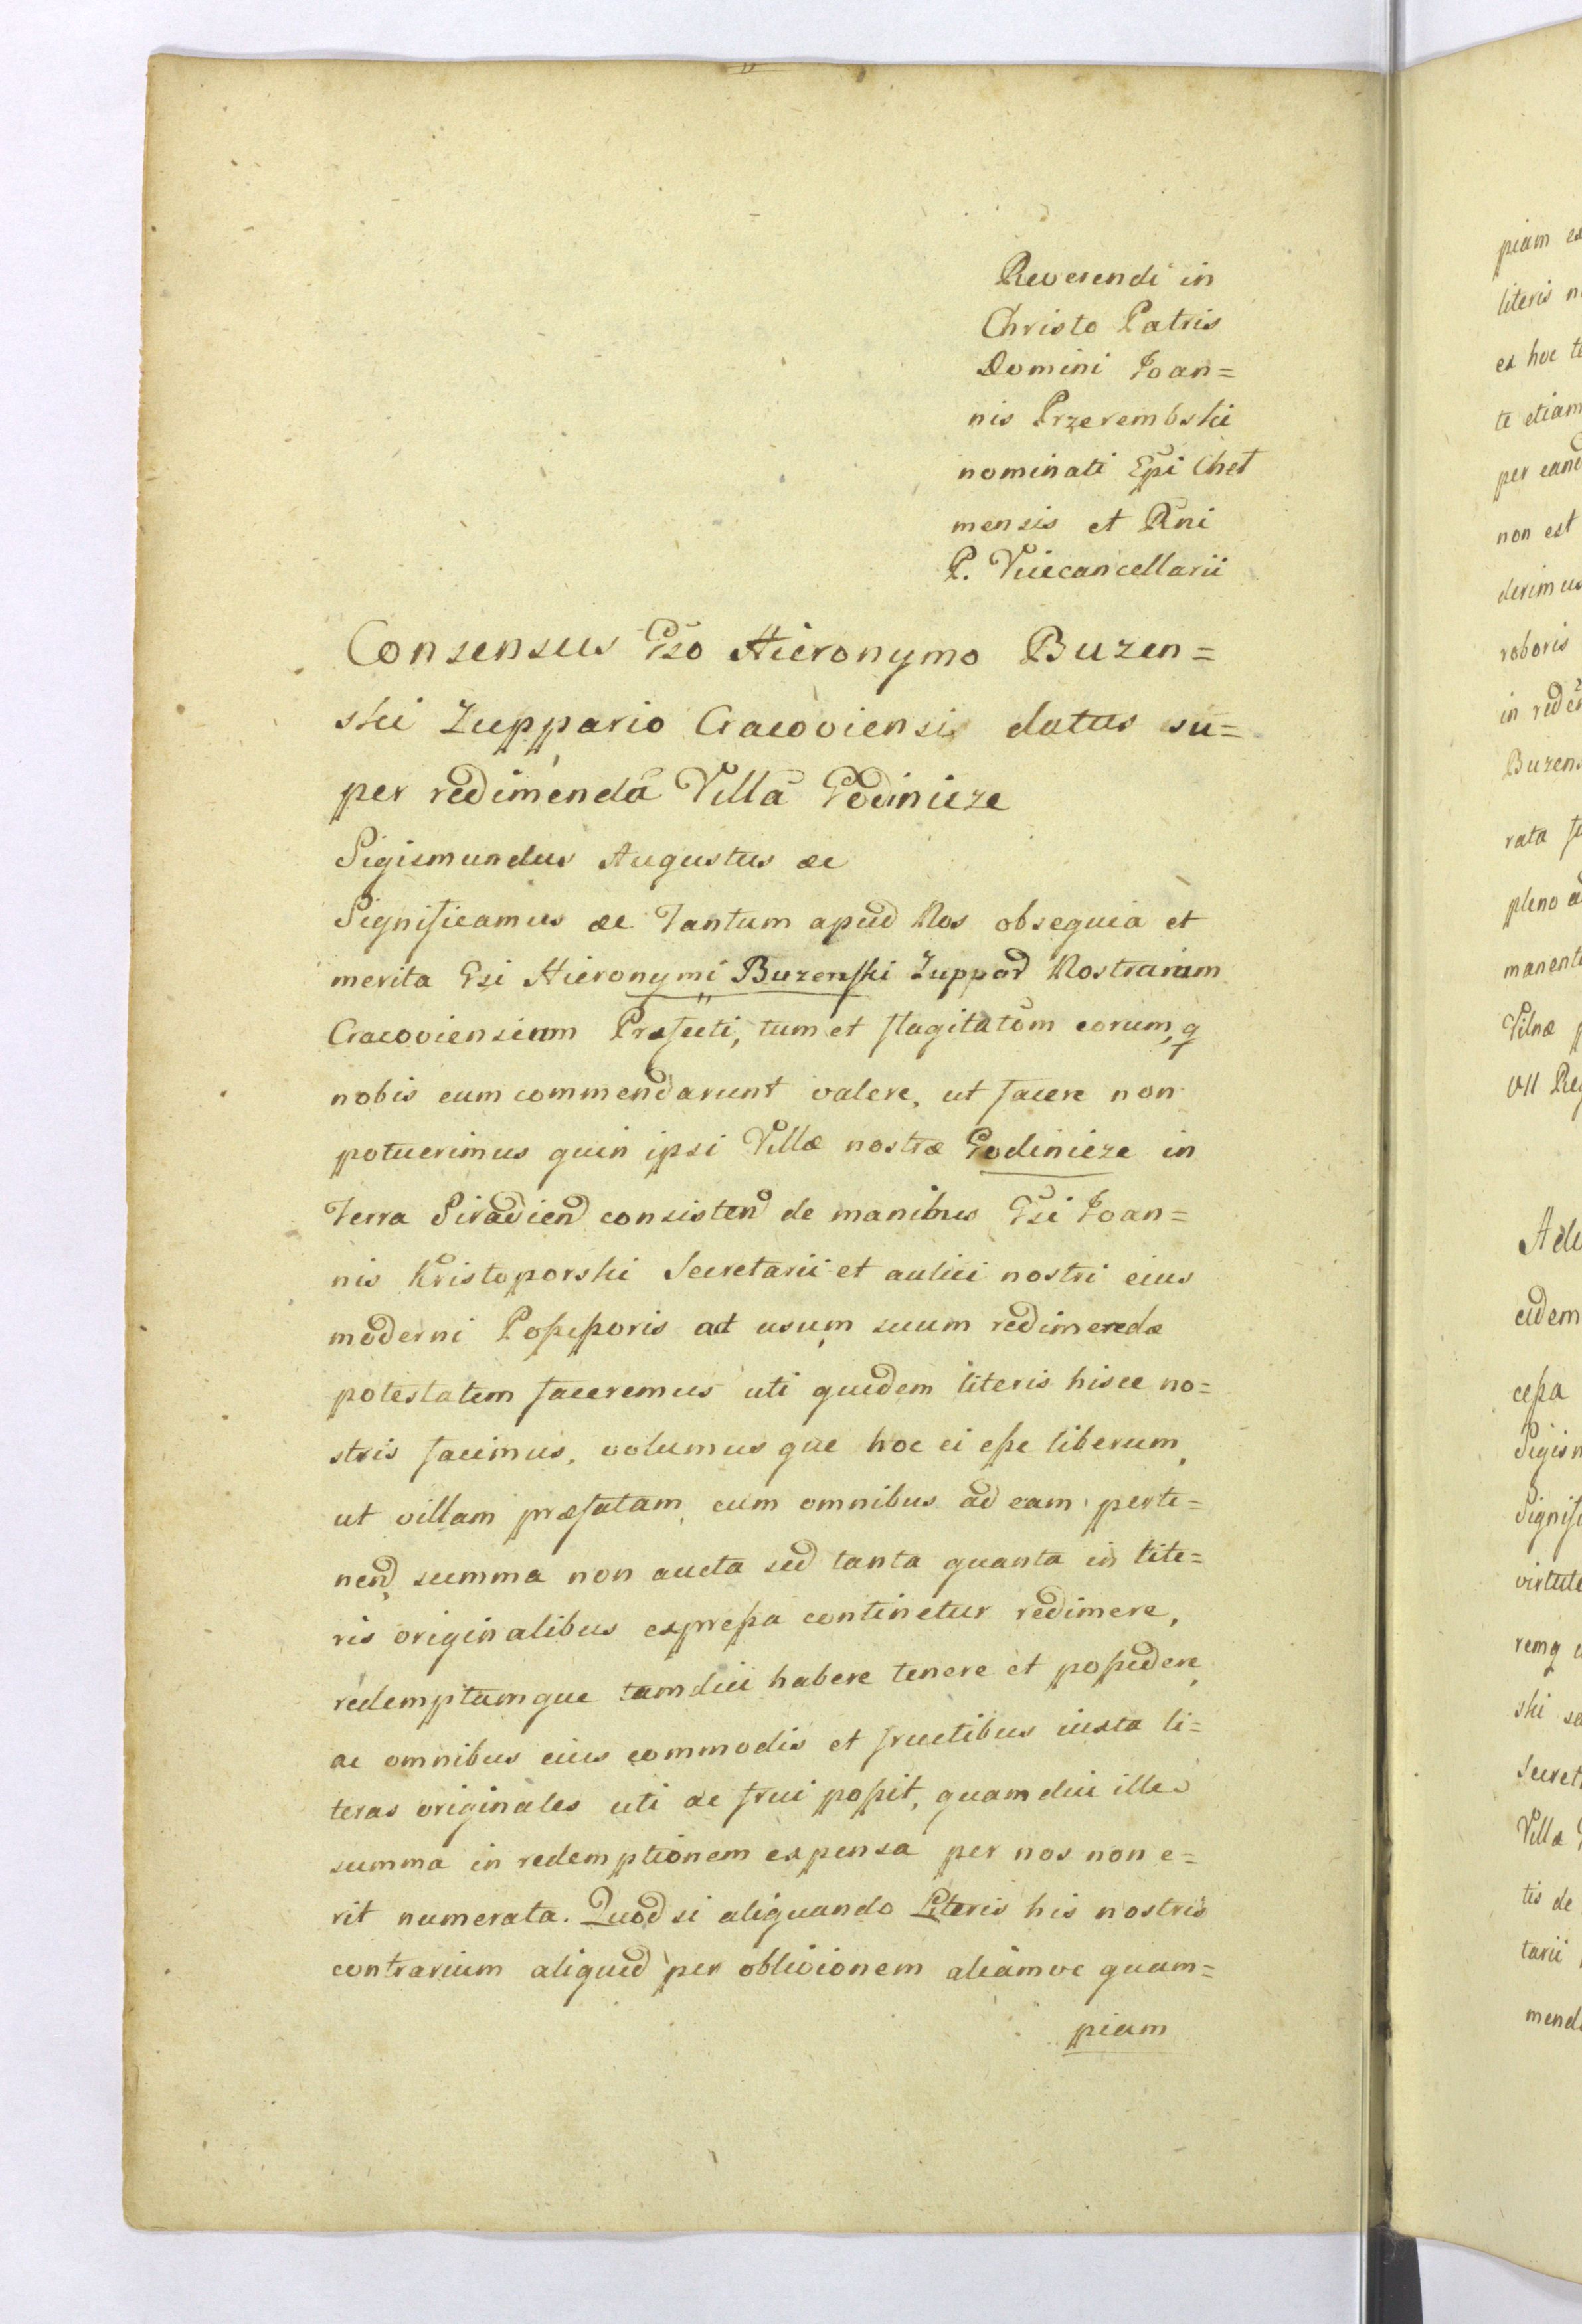 Reverendi in
Christo Patris
Domini Joan=
nis Przerembski
nominati Epi Cheł
mensis et Rni
P. Vicecancellarii
Consensus Gso Hieronymo Buzen=
ski Zuppario Cracoviensi datus su=
per redimenda Villa Godinicze
Sigismundus Augustus &c
Significamus &c Tantum apud Nos obsequia et
merita Gsi Hieronymi Buzenski Zuppar Nostrarum
Cracoviensium Præfecti, tum et flagitatom eorum, q
nobis eum commendarunt valere, ut facere non
potuerimus quin ipsi Villæ nostræ Godinicze in
Terra Siradien consisten de manibus Gsi Joan=
nis Kristoporski Secretarii et aulici nostri eius
moderni Possessoris ad usum suum redimendæ
potestatem faceremus uti quidem literis hisce no=
stris facimus, volumus que hoc ei esse liberum,
ut villam præfatam cum omnibus ad eam perti=
nen, summa non aucta sed tanta quanta in lite=
ris originalibus expressa continetur redimere,
redemptamque tamdiu habere tenere et possidere,
ac omnibus eius commodis et fructibus iuxta li=
teras originales uti ac frui possit, quamdiu illa
summa in redemptionem expensa per nos non e=
rit numerata. Quod si aliquando Literis his nostris
contrarium aliquid per oblivionem aliamve quam=
piam
piam
literis
ex hoc
te etiam
per
non est
derimus
roboris
in
rata
pleno
manent
Vilnæ
VII
eidem
cessa
virtute
remq
ski
Villa
tis de
tarii